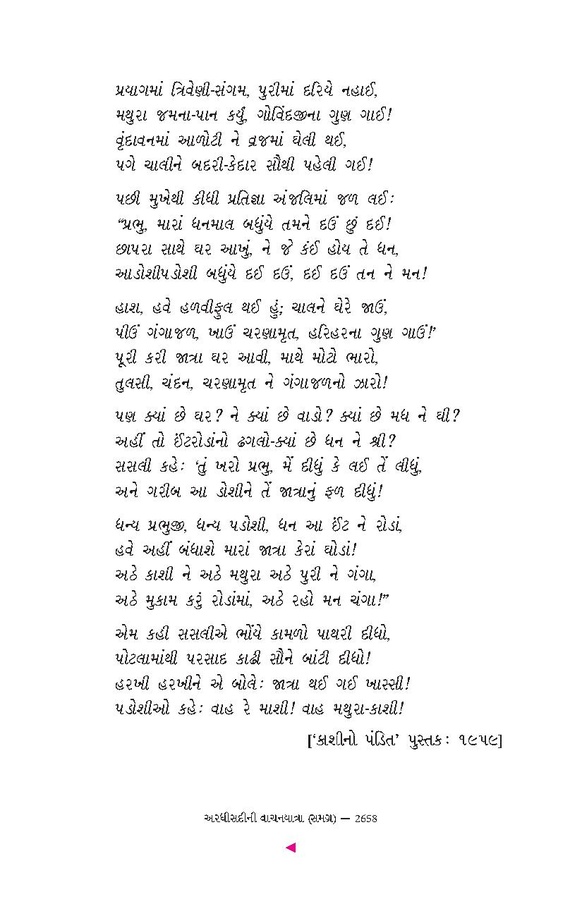 પ્રયાગમાં ત્રિવેણી-સંગમ, પુરીમાં દરિયે નહાઈ,
મથુરા જમના-પાન કર્યું, ગોવિંદજીના ગુણ ગાઈ!
વૃંદાવનમાં આળોટી ને વ્રજમાં ઘેલી થઈ,
પગે ચાલીને બદરી-કેદાર સૌથી પહેલી ગઈ!
પછી મુખેથી કીધી પ્રતિજ્ઞા અંજલિમાં જળ લઈઃ
“પ્રભુ, મારાં ધનમાલ બધુંયે તમને દઉં છું દઈ!
છાપરા સાથે ઘર આખું, ને જે કંઈ હોય તે ધન,
આડોશીપડોશી બધુંયે દઈ દઉં, દઈ દઉં તન ને મન!
હાશ, હવે હળવીફુલ થઈ હું; ચાલને ઘેરે જાઉં,
પીઉં ગંગાજળ, ખાઉં ચરણામૃત, હરિહરના ગુણ ગાઉં!’
પૂરી કરી જાત્રા ઘર આવી, માથે મોટો ભારો,
તુલસી, ચંદન, ચરણામૃત ને ગંગાજળનો ઝારો!
પણ ક્યાં છે ઘર? ને ક્યાં છે વાડો? ક્યાં છે મધ ને ઘી?
અહીં તો ઈંટરોડાંનો ઢગલો-ક્યાં છે ધન ને શ્રી?
સસલી કહેઃ ‘તું ખરો પ્રભુ, મેં દીધું કે લઈ તેં લીધું,
અને ગરીબ આ ડોશીને તેં જાત્રાનું ફળ દીધું!
ધન્ય પ્રભુજી, ધન્ય પડોશી, ધન આ ઈંટ ને રોડાં,
હવે અહીં બંધાશે મારાં જાત્રા કેરાં ઘોડાં!
અઠે કાશી ને અઠે મથુરા અઠે પુરી ને ગંગા,
અઠે મુકામ કરું રોડાંમાં, અઠે રહો મન ચંગા!”
એમ કહી સસલીએ ભોંયે કામળો પાથરી દીધો,
પોટલામાંથી પરસાદ કાઢી સૌને બાંટી દીધો!
હરખી હરખીને એ બોલેઃ જાત્રા થઈ ગઈ ખાસ્સી!
પડોશીઓ કહેઃ વાહ રે માશી! વાહ મથુરા-કાશી!
[‘કાશીનો પંડિત’ પુસ્તકઃ ૧૯૫૯]
અરધીસદીની વાચનયાત્રા (સમગ્ર) — 2658